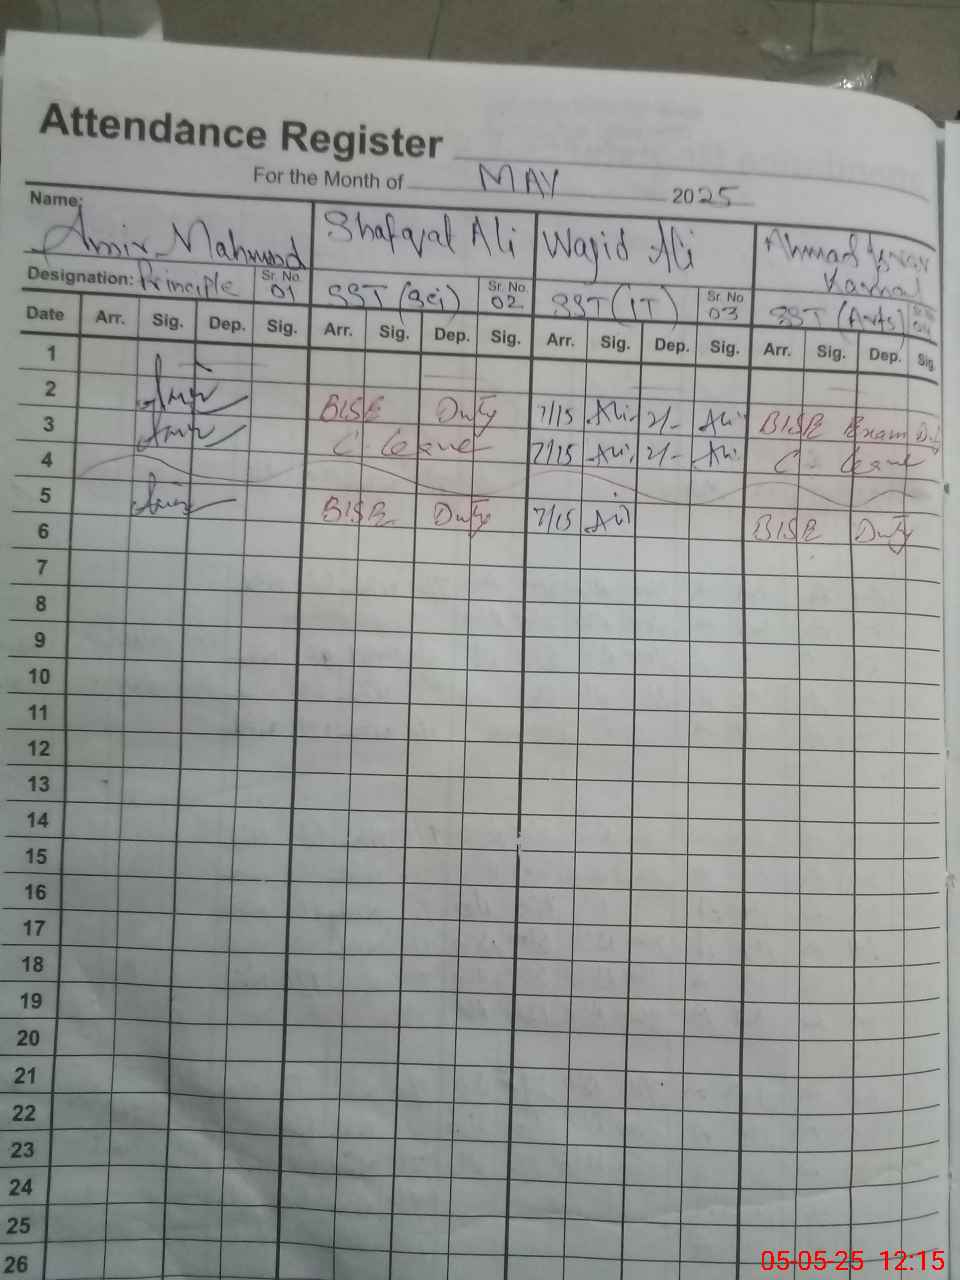 Attendance Register
For the Month of MAY 2025
Name: Amir Mahmood Shafqat Ali Wajid Ali Ahmad
Kamal
Designation: Principle Sr. No. 01 SST (Sci) Sr. No. 02 SST (IT) Sr. No 03 SST (Arts) Sr. No 04
Date Arr. Sig. Dep. Sig. Arr. Sig. Dep. Sig. Arr. Sig. Dep. Sig. Arr. Sig. Dep. Sig.
1
2 BISE Duty 7/15 Ali 2/- Ali BISE Exam
3 C. Leave 7/15 Ali 2/- Ali C Leave
4
5 BISE Duty 7/15 Ali BISE Duty
6
7
8
9
10
11
12
13
14
15
16
17
18
19
20
21
22
23
24
25
26
05-05-25 12:15